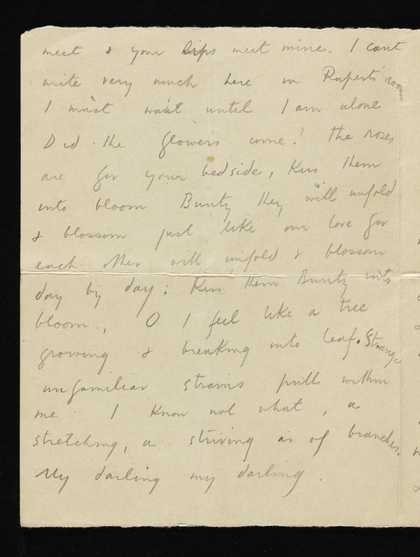 meet & your lips meet mine. I cant
write very much here in Rupert's room
I must wait until I am alone
Did the flowers come? The roses
are for your bedside, Kiss them
into bloom Bunty they will unfold
& blossom just like our love for
each other will unfold & blossom
day by day; Kiss them Bunty into
bloom., O I feel like a tree
growing & breaking into leaf. Strange
unfamiliar strains pull within
me. I know not what, a
stretching, a striving as of branches.
My darling my darling.